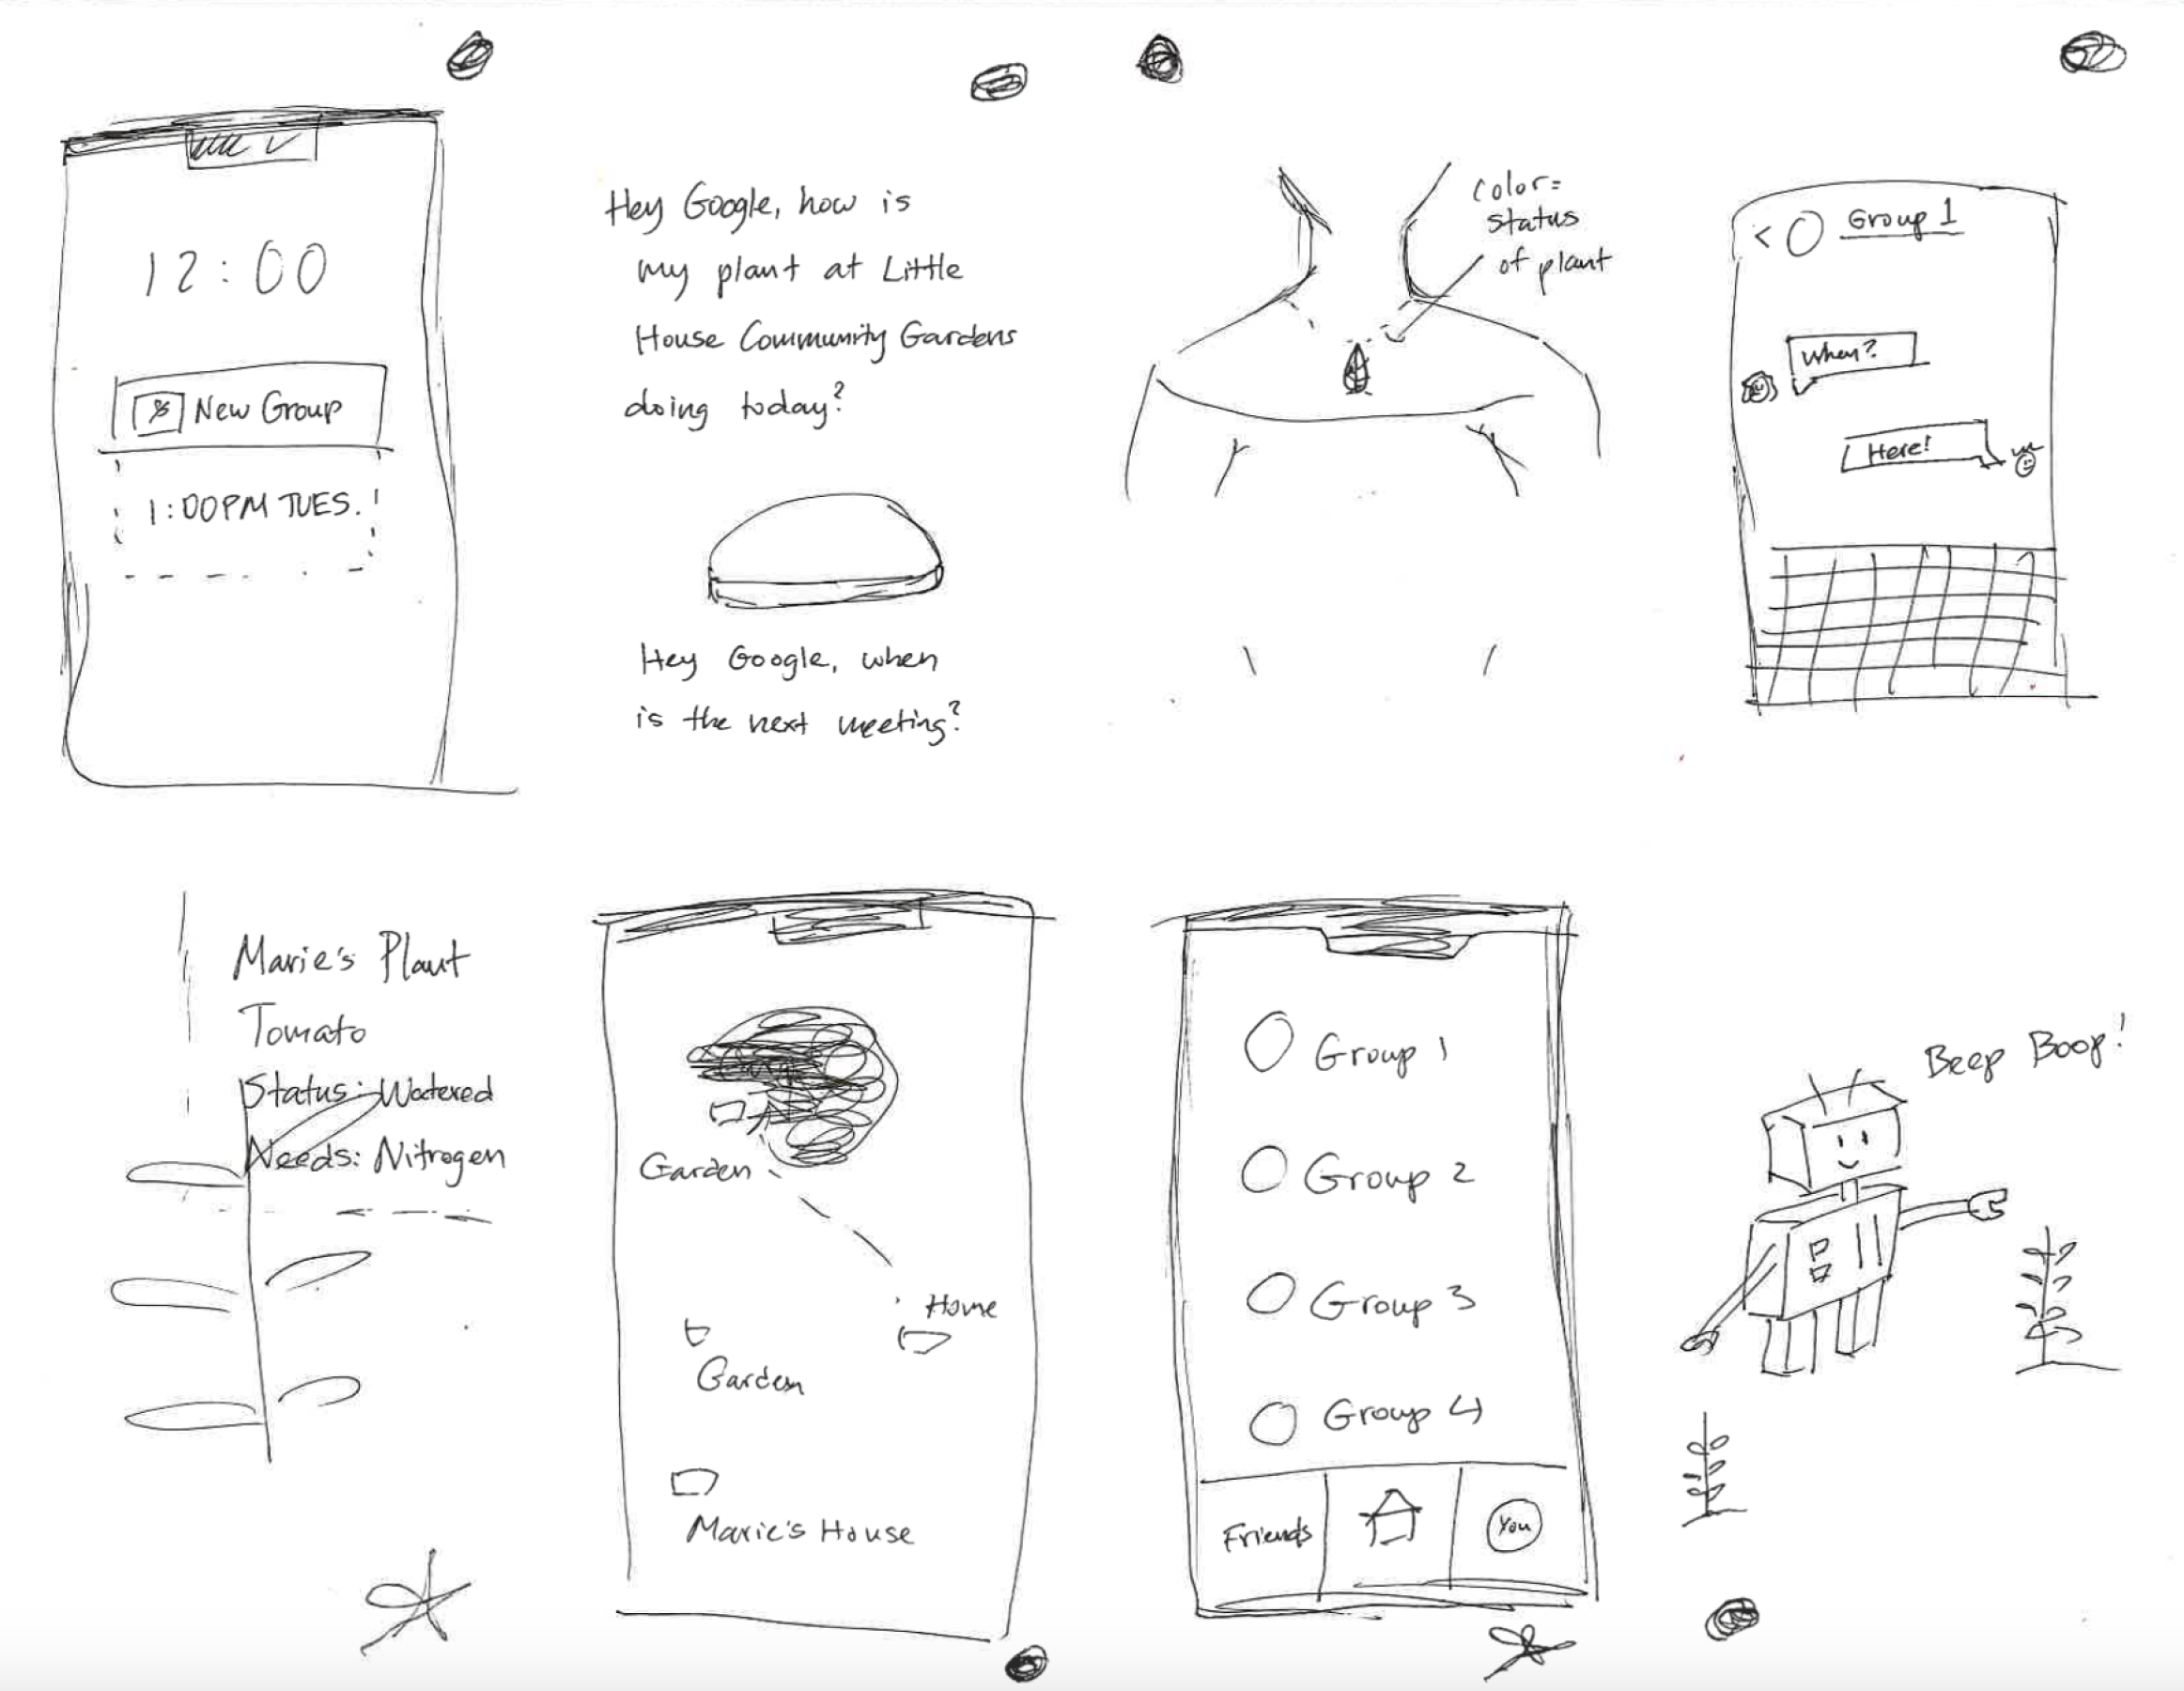 12:00
New Group
1:00PM TUES.
Hey Google, how is
my plant at Little
House Community Gardens
doing today?
Hey Google, when
is the next meeting?
color=
status
of plant
< Group 1
When?
Here!
Marie's Plant
Tomato
Status: Watered
Needs: Nitrogen
Garden
Home
Garden
Marie's House
Group 1
Group 2
Group 3
Group 4
Friends
You
Beep Boop!